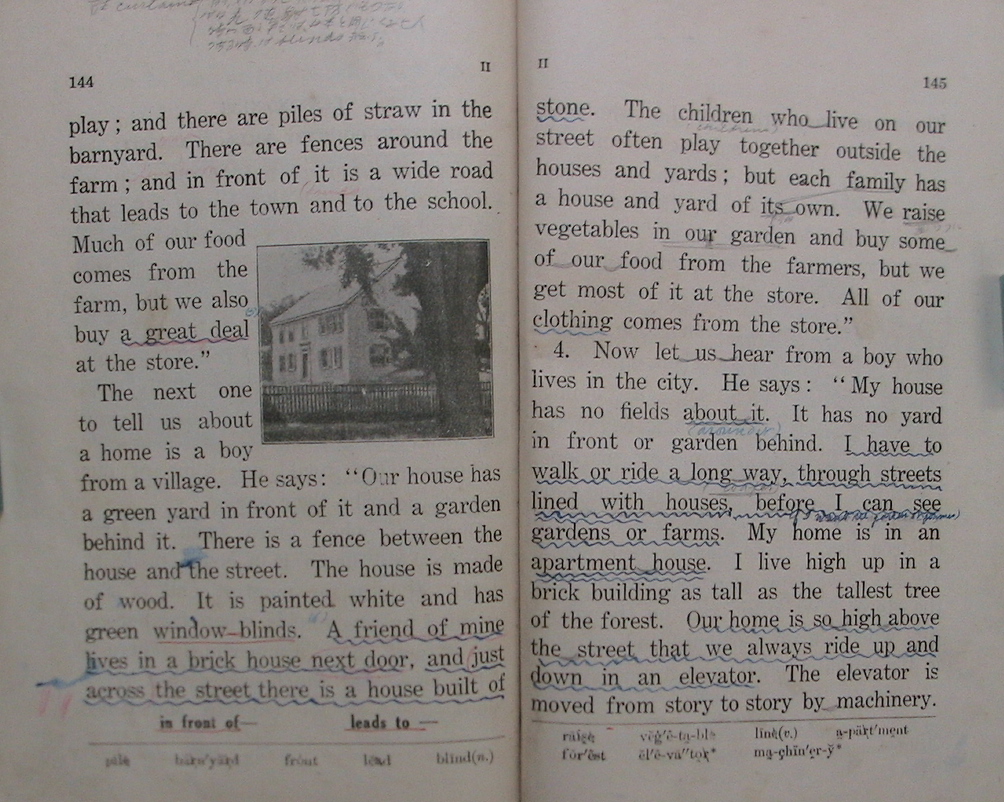 144
II
play; and there are piles of straw in the
barnyard. There are fences around the
farm; and in front of it is a wide road
that leads to the town and to the school.
Much of our food
comes from the
farm, but we also
buy a great deal
at the store.”
The next one
to tell us about
a home is a boy
from a village. He says: “Our house has
a green yard in front of it and a garden
behind it. There is a fence between the
house and the street. The house is made
of wood. It is painted white and has
green window-blinds. A friend of mine
lives in a brick house next door, and just
across the street there is a house built of
in front of—
leads to —
pile barn'yärd front lead blind(n.)
II
145
stone. The children who live on our
street often play together outside the
houses and yards; but each family has
a house and yard of its own. We raise
vegetables in our garden and buy some
of our food from the farmers, but we
get most of it at the store. All of our
clothing comes from the store.”
4. Now let us hear from a boy who
lives in the city. He says: “My house
has no fields about it. It has no yard
in front or garden behind. I have to
walk or ride a long way, through streets
lined with houses, before I can see
gardens or farms. My home is in an
apartment house. I live high up in a
brick building as tall as the tallest tree
of the forest. Our home is so high above
the street that we always ride up and
down in an elevator. The elevator is
moved from story to story by machinery.